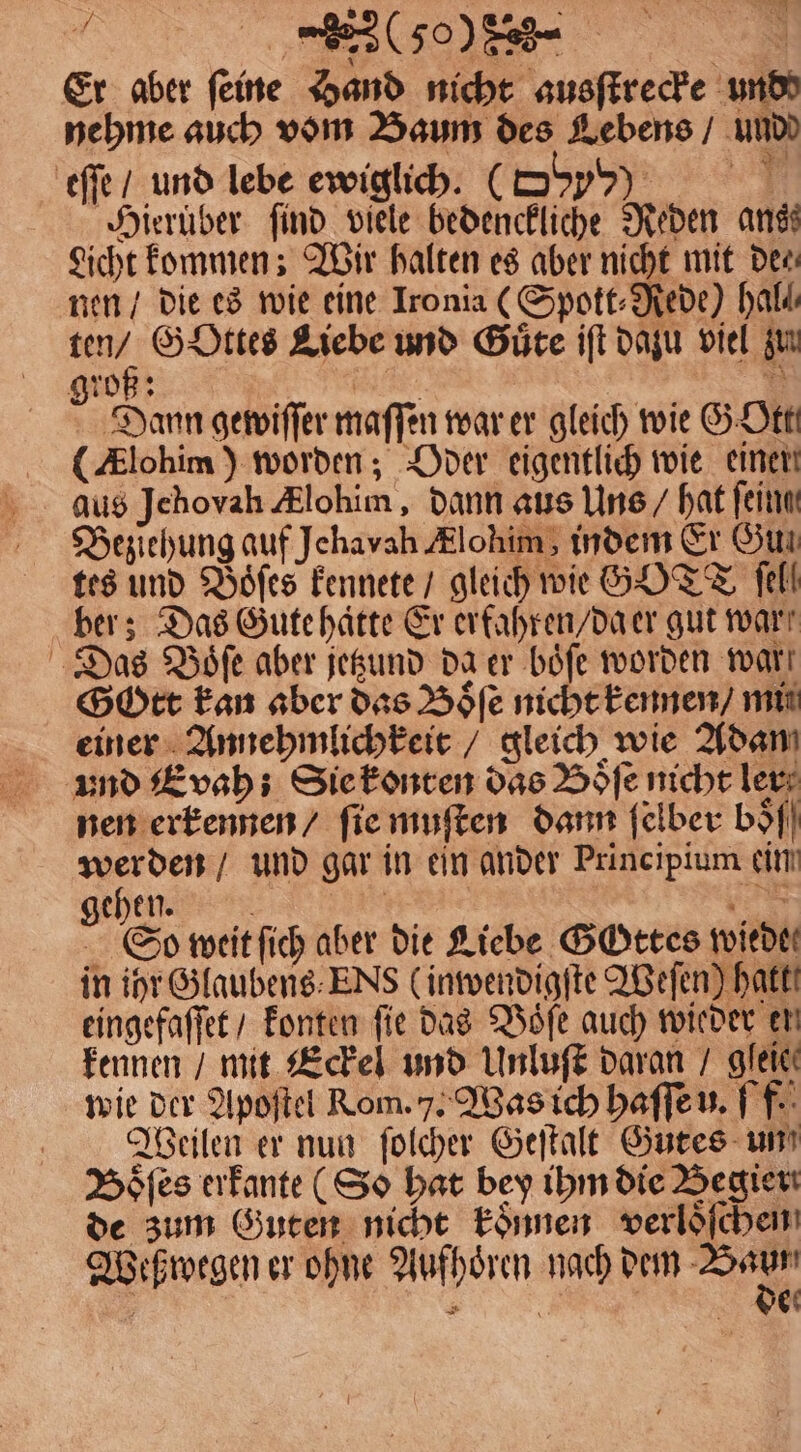 (50)
Er aber ſeine Hand nicht ausſtrecke und
nehme auch vom Baum des Lebens / und
eſſe / und lebe ewiglich. (לעלם)
Hieruͤber ſind viele bedenckliche Reden ans
Licht kommen; Wir halten es aber nicht mit de-
nen / die es wie eine Ironia (Spott-Rede) hal-
ten / GOttes Liebe und Guͤte iſt dazu viel zu
groß:
Dann gewiſſer maſſen war er gleich wie GOtt
(Ælohim) worden; Oder eigentlich wie einer
aus Jehovah Ælohim, dann aus Uns / hat ſeine
Beziehung auf Jehavah Ælohim, indem Er Gu-
tes und Boͤſes kennete / gleich wie GOTT ſel-
ber; Das Gute haͤtte Er erfahren/da er gut war
Das Boͤſe aber jetzund da er boͤſe worden war
GOtt kan aber das Boͤſe nicht kennen/ mit
einer Annehmlichkeit / gleich wie Adam
und Evah; Sie konten das Boͤſe nicht ler-
nen erkennen / ſie muſten dann ſelber boͤſ
werden / und gar in ein ander Principium ein
gehen.
So weit ſich aber die Liebe GOttes wieder
in ihr Glaubens-ENS (inwendigſte Weſen) hatt
eingefaſſet / konten ſie das Boͤſe auch wieder er
kennen / mit Eckel und Unluſt daran / gleich
wie der Apoſtel Rom. 7. Was ich haſſe u. ſ f.
Weilen er nun ſolcher Geſtalt Gutes un
Boͤſes erkante (So hat bey ihm die Begier
de zum Guten nicht koͤnnen verloͤſchen
Weßwegen er ohne Aufhoͤren nach dem Baum
des